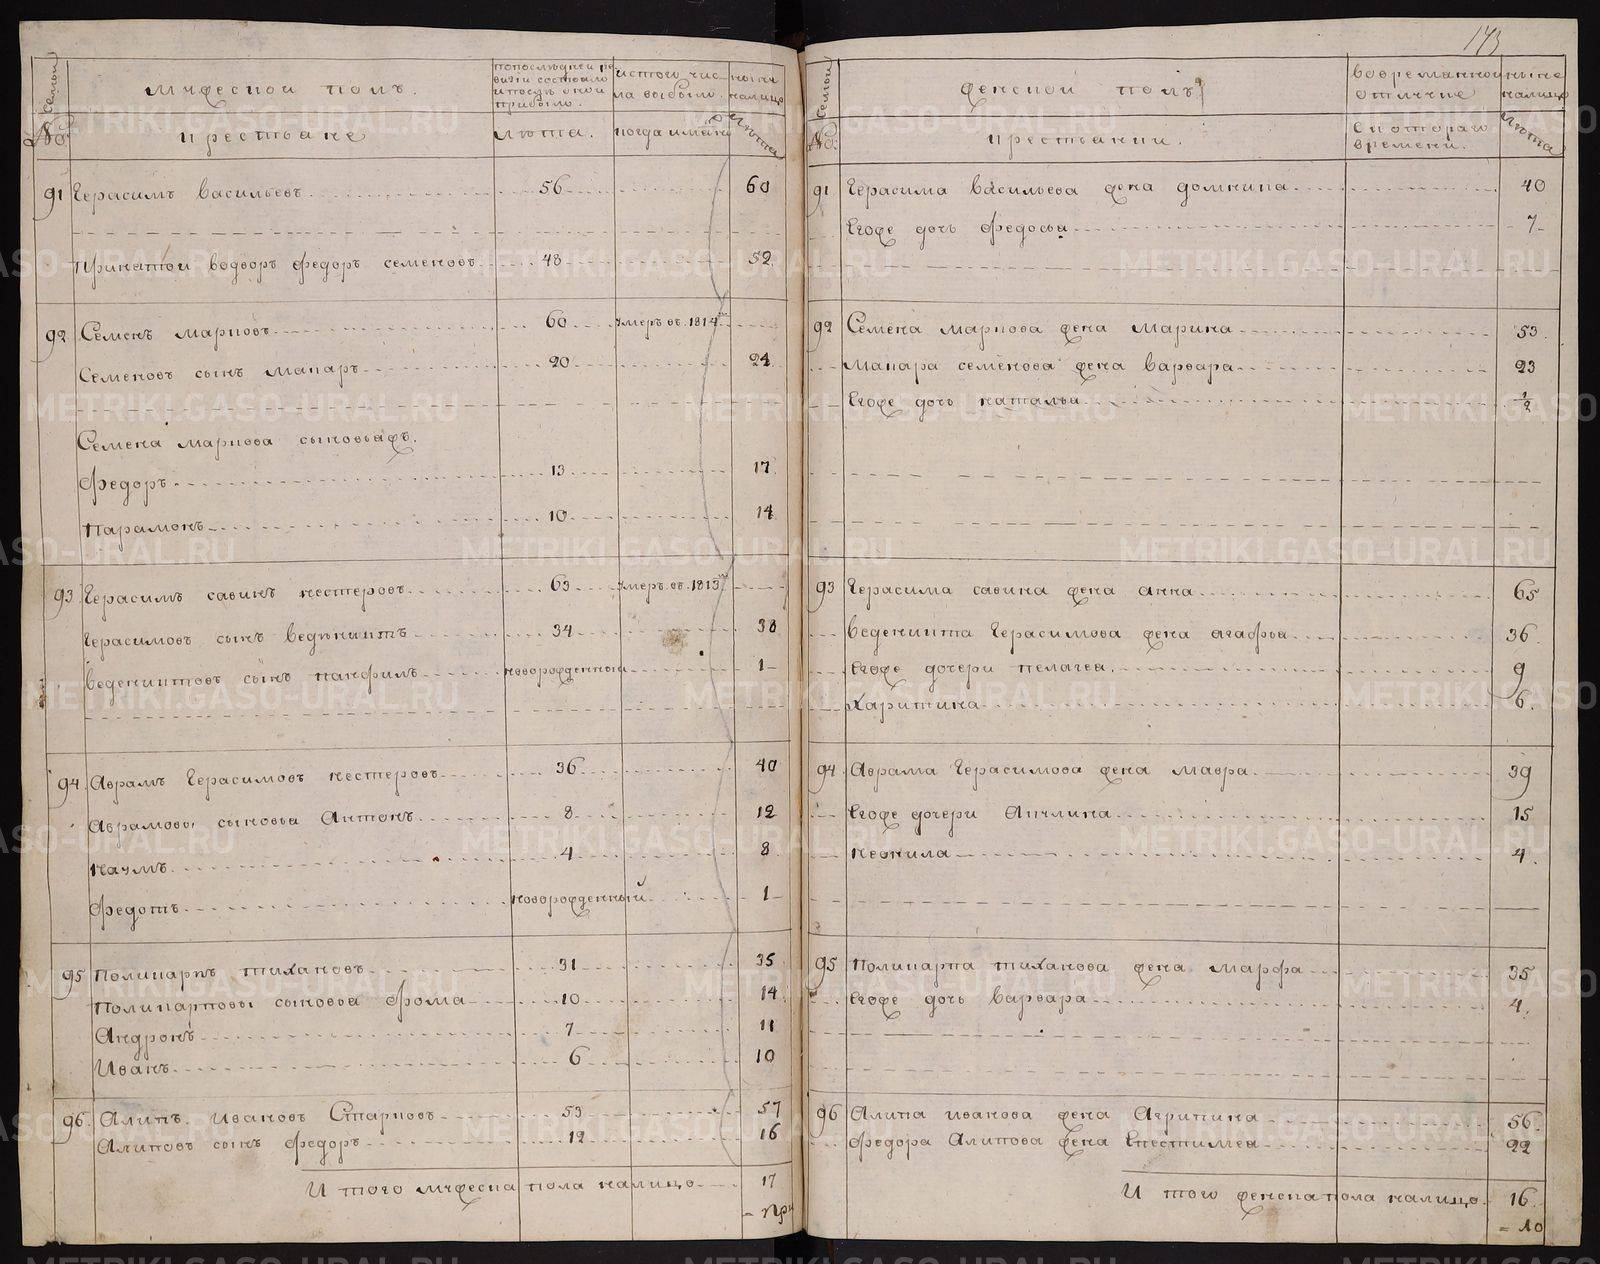 173
Семьи
№
мужеской полъ.
крестьяне
попоследней ре
визіи состояло
ипосле оной
прибыло.
лета.
истого чис
ла выбыло.
когда имянно
ныне
налицо
лета
91 Герасимъ Васильевъ 56 60
Принятой водворъ федоръ семеновъ 48 52
92 Семенъ марковъ 60 умеръ въ 1814м
Семеновъ сынъ макаръ 20 24
Семена маркова сыновьяжъ.
федоръ 13 17
Парамонъ 10 14
93 Герасимъ савинъ нестеровъ 63 умеръ въ 1813м
Герасимовъ сынъ веденихтъ 34 38
веденихтовъ сынъ панфилъ новорожденный 1
94 Аврамъ Герасимовъ нестеровъ 36 40
Аврамовы сыновья Антонъ 8 12
наумъ 4 8
федотъ новорожденный 1
95 Поликарпъ тихановъ 31 35
Поликарповы сыновья фома 10 14
Андронъ 7 11
Иванъ 6 10
96 Алипъ Ивановъ Старковъ 53 57
Алиповъ сынъ федоръ 12 16
И того мужеска пола налицо 17
Семьи
№
женской полъ
крестьянки.
вовременной
отлучке
скотораго
времени.
ныне
налицо
лета
91 Герасима Васильева жена домника 40
Егоже дочь федосья 7
92 Семена маркова жена марина 53
макара семенова жена варвара 23
Егоже дочь наталья 1/2
93 Герасима савина жена анна 65
веденихта Герасимова жена агафья 36
Егоже дочери пелагея 9
Харитина 6
94 Аврама Герасимова жена мавра 39
Егоже дочери Акулина 15
неонила 4
95 Поликарпа тиханова жена марфа 35
Егоже дочь варвара 4
96 Алипа иванова жена Агрипина 56
федора Алипова жена 22
И того женска пола налицо 16
METRIKI.GASO-URAL.RU